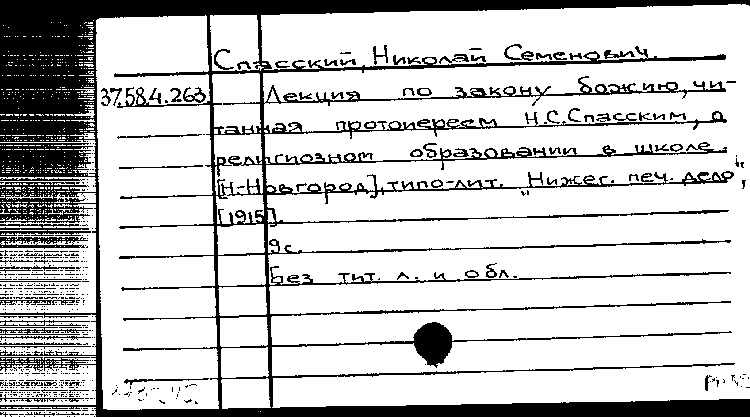 Спасский, Николай Семенович.
37.58.4.263
Лекция по закону божию, чи-
танная протоиереем Н.С.Спасским, о
религиозном образовании в школе.
[Н-Новгород], типо-лит. "Нижег. печ. дело",
[1915].
9с.
Без тит. л. и обл.